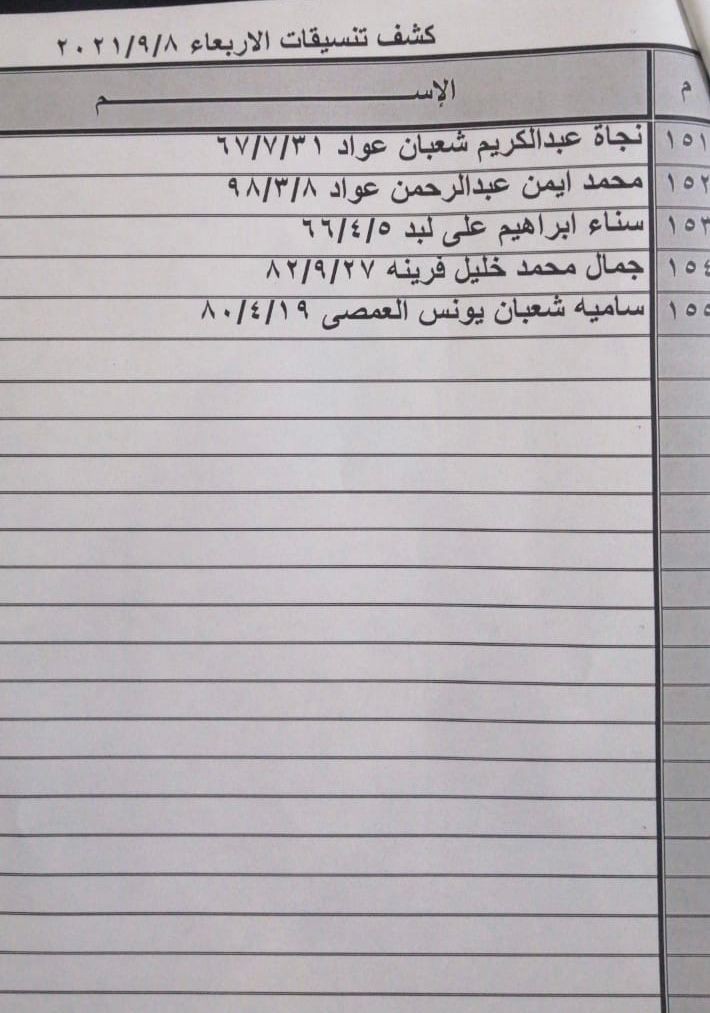 كشف تنسيقات الاربعاء ٢٠٢١/٩/٨
م الإســـــــــــــــــــم
١٥١ نجاة عبدالكريم شعبان عواد ٦٧/٧/٣١
١٥٢ محمد ايمن عبدالرحمن عواد ٩٨/٣/٨
١٥٣ سناء ابراهيم على لبد ٦٦/٤/٥
١٥٤ جمال محمد خليل فرينه ٨٢/٩/٢٧
١٥٥ ساميه شعبان يونس العمصى ٨٠/٤/١٩